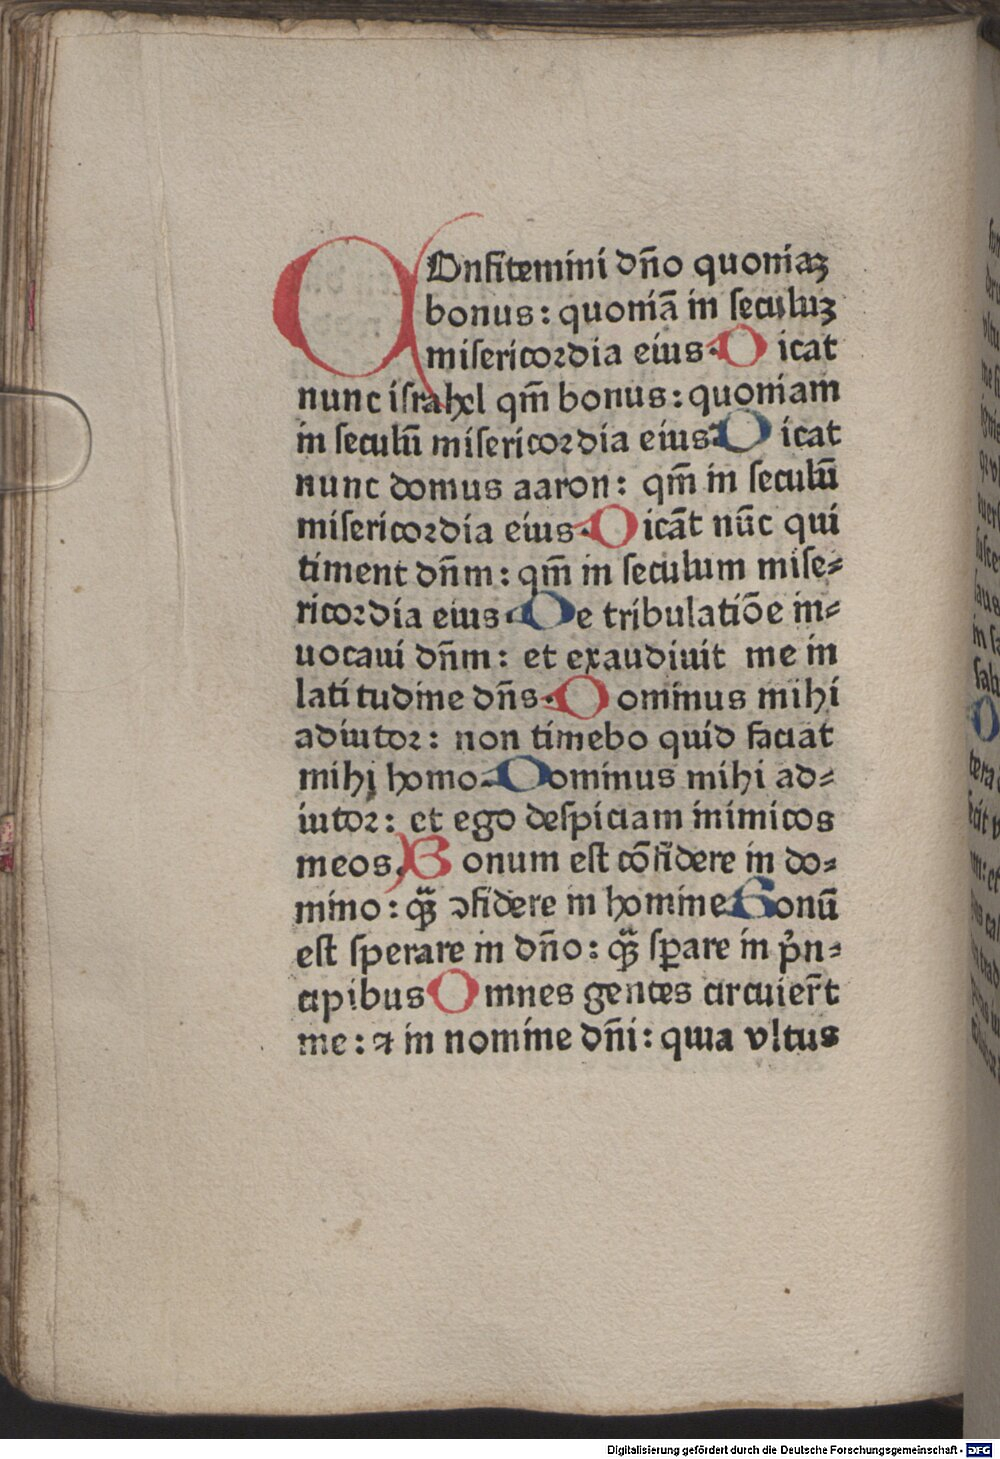 COnfitemini dño quoniaꝫ
bonus: quoniã in seculuꝫ
misericordia eius. Dicat
nunc israhel qm̃ bonus: quoniam
in seculũ misericordia eius. Dicat
nunc domus aaron: qm̃ in seculũ
misericordia eius. Dicãt nũc qui
timent dñm: qm̃ in seculum mise⸗
ricordia eius. De tribulatiõe in⸗
uocaui dñm: et exaudiuit me in
latitudine dñs. Dominus mihi
adiutor: non timebo quid faciat
mihi homo. Dominus mihi ad⸗
iutor: et ego despiciam inimicos
meos. Bonum est cõfidere in do⸗
mino: qꝫ̃ ꝯfidere in homine. Bonũ
est sperare in dño: qꝫ̃ sꝑare in p̃n⸗
cipibus Omnes gentes circuier̃t
me: ⁊ in nomine dñi: quia vltus
Digitalisierung gefördert durch die Deutsche Forschungsgemeinschaft - DFG